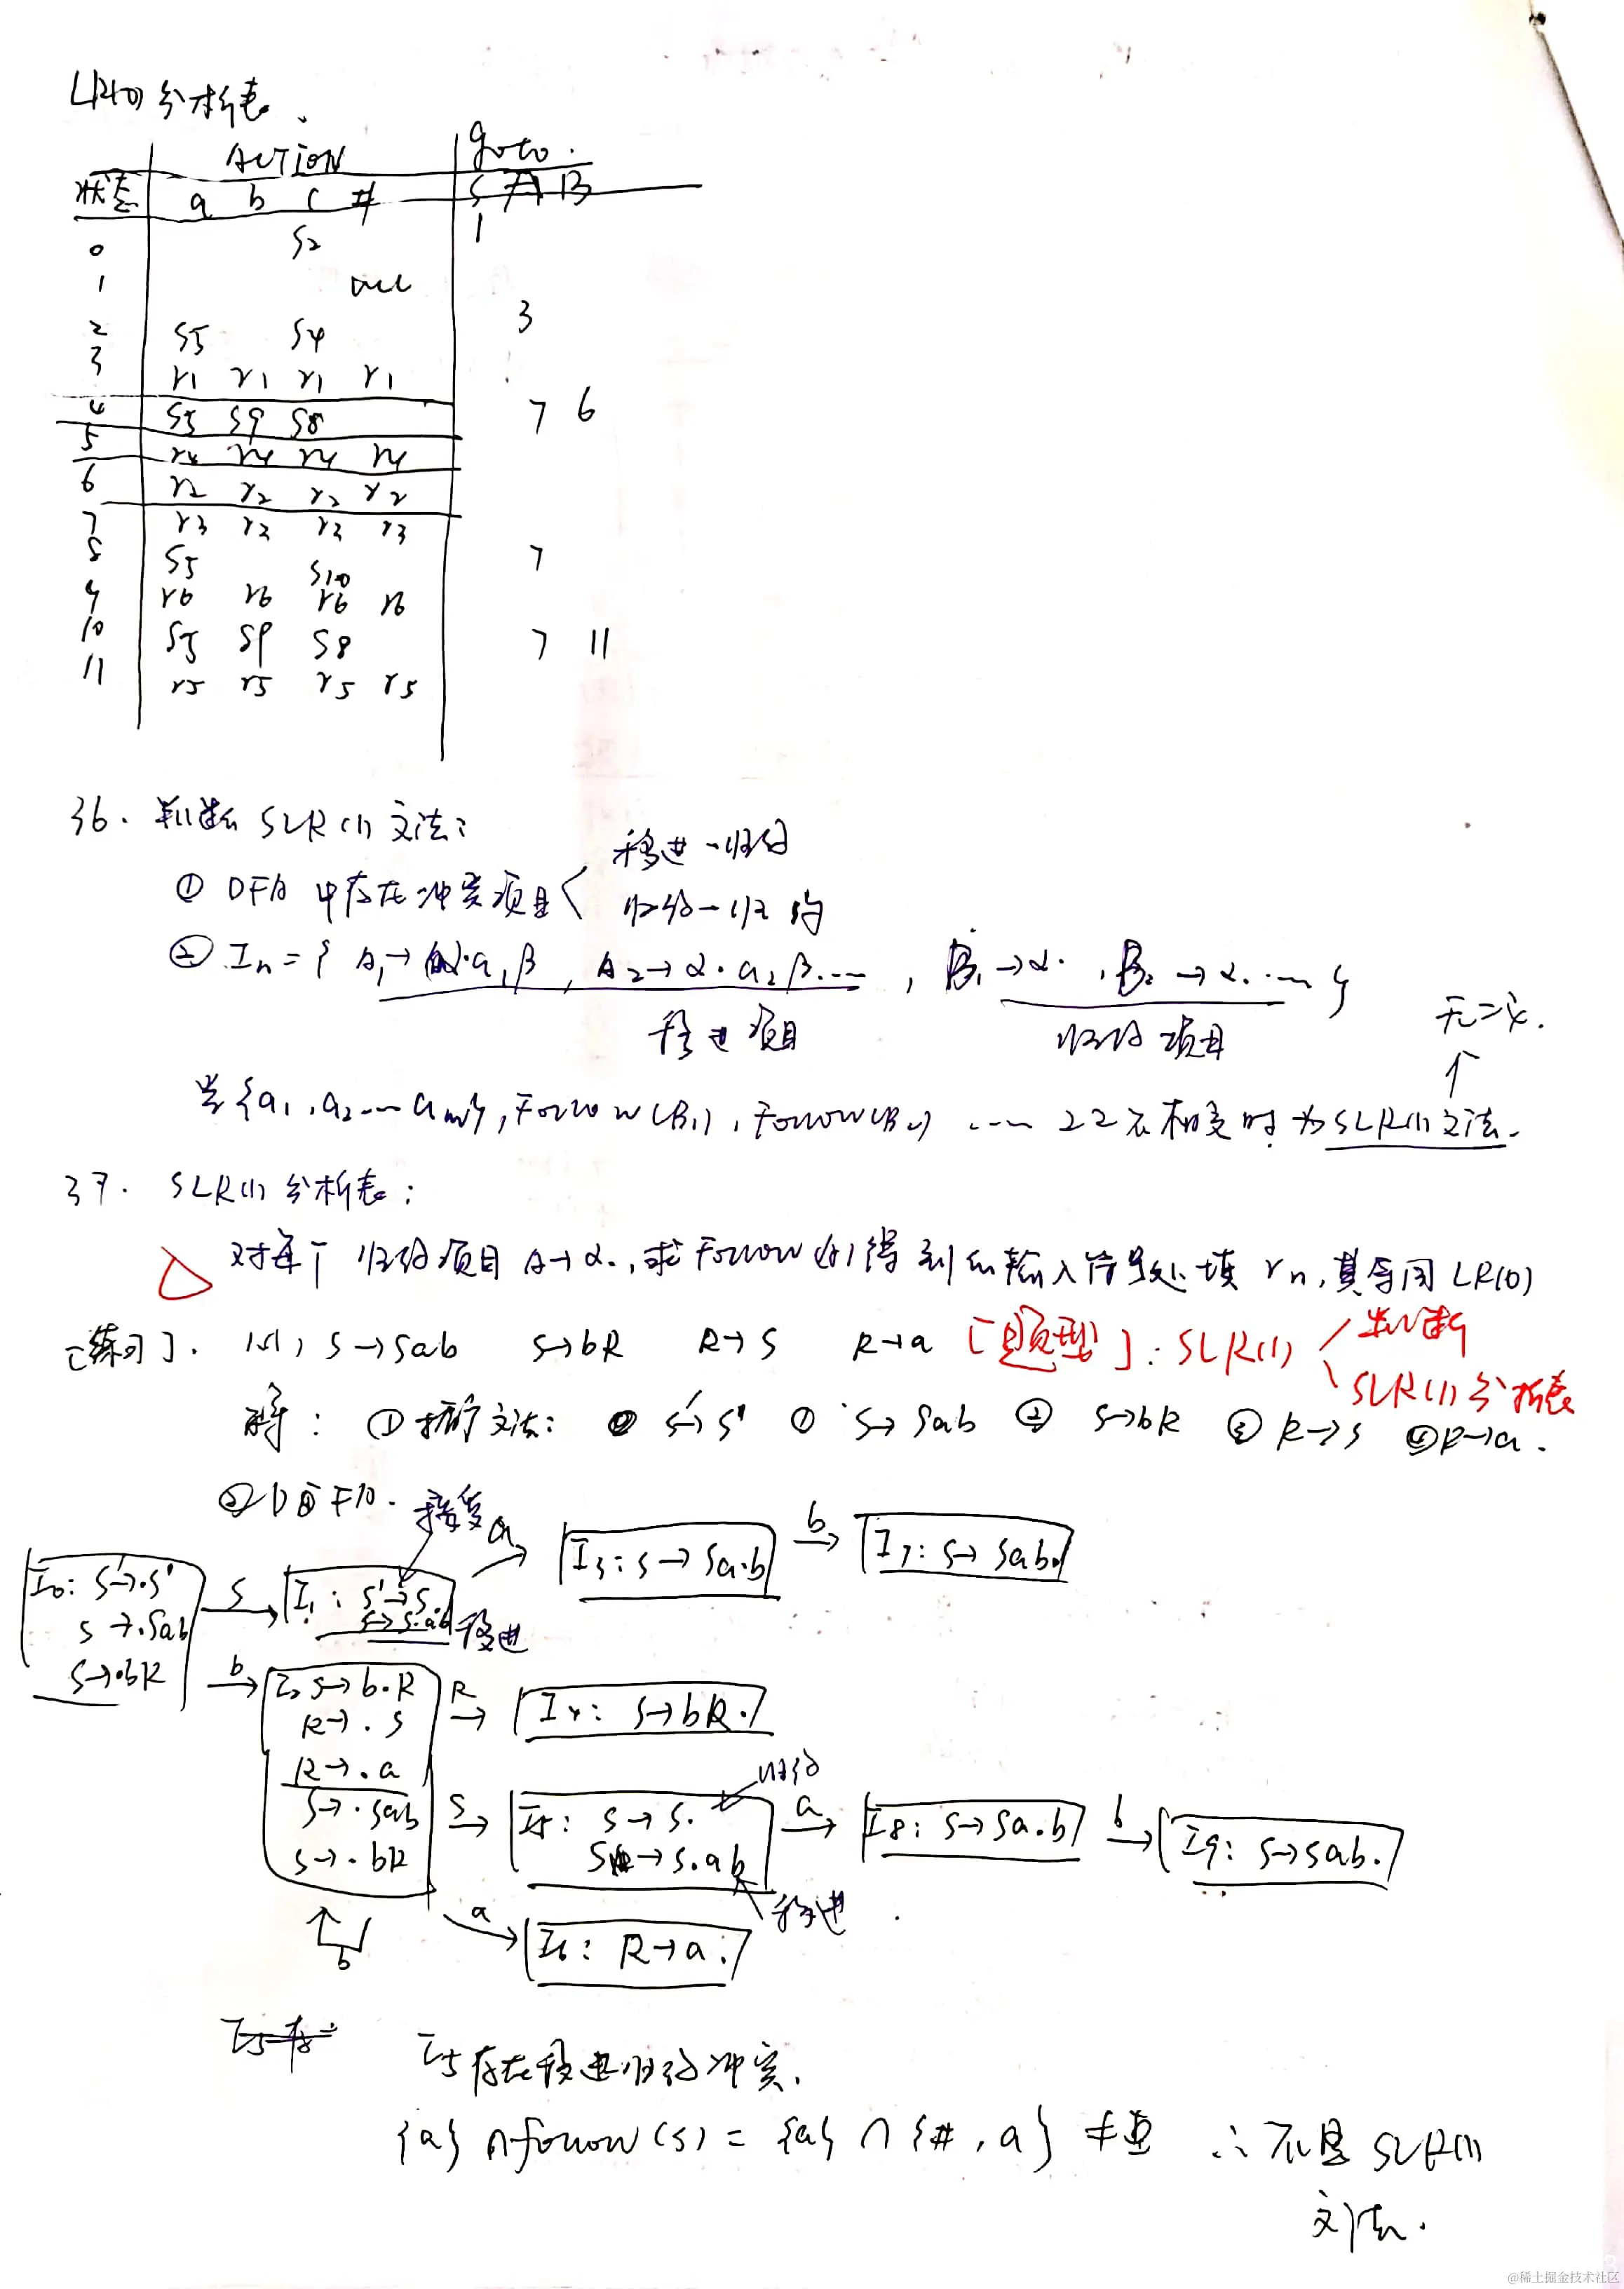 LR(0)分析表、
ACTION goto.
状态 a b c # S A B
0 S2 1
1 acc
2 S5 S4 3
3 r1 r1 r1 r1
4 S5 S9 S8 7 6
5 r4 r4 r4 r4
6 r2 r2 r2 r2
7 r3 r3 r3 r3
8 S5 S10 7
9 r6 r6 r6 r6
10 S5 S9 S8 7 11
11 r5 r5 r5 r5
36. 判断SLR(1)文法:
① DFA中存在冲突项目 移进-归约
归约-归约
② In = { A1→α·a1β, A2→α·a2β...., B1→α·, B2→α·.... }
移进项目 归约项目 无二义.
当{a1,a2....am}, Follow(B1), Follow(B2) .... 两两不相交时为SLR(1)文法.
37. SLR(1)分析表:
△ 对每个归约项目A→α·,求Follow(A)得到的输入符号处填rn,其号同LR(0)
[练习]. (5) S→Sab S→bR R→S R→a [题型]: SLR(1) 判断
SLR(1)分析表
解: ①拓广文法: ⓪ S→S' ① S→Sab ② S→bR ③ R→S ④ R→a.
② DFA. 接受
I0: S'→·S' S→·Sab S→·bR
S
I1: S'→S· S→S·ab 移进
a
I3: S→Sa·b
b
I7: S→Sab·
b
I2 S→b·R R→·S R→·a S→·Sab S→·bR
R
I4: S→bR·
S
I5: S→S· S→S·ab
归约
移进
a
I8: S→Sa·b
b
I9: S→Sab·
a
I6: R→a·
b
I5存
I5存在移进归约冲突.
{a}∩follow(S) = {a}∩{#,a} ≠ ∴不是SLR(1)
文法.
@稀土掘金技术社区